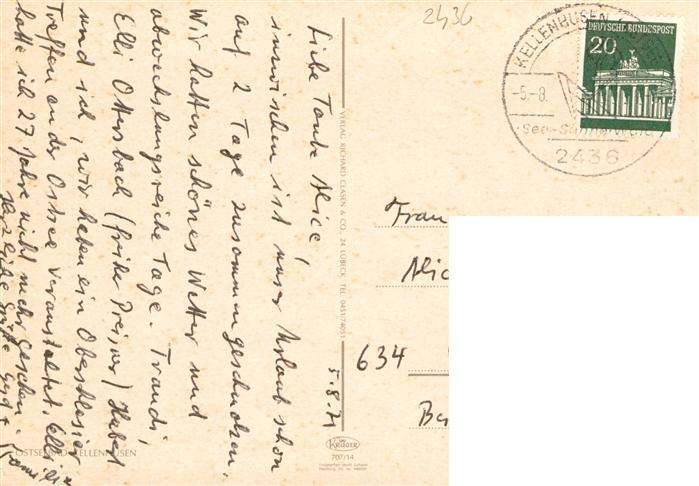 2436
KELLENHUSEN
DEUTSCHE BUNDESPOST
20
-5.-8.
See-Sonne-Wald
2436
5.8.71
Liebe Tante Alice!
inzwischen ist unser Urlaub schon
auf 2 Tage zusammengeschmolzen.
Wir hatten schönes Wetter und
abwechslungsreiche Tage. Traudi,
Elli Ottersbach (früher Preisner) Hubert
und ich, wir haben ein Oberschlesier
Treffen an der Ostsee veranstaltet. Elli
hatte ich 27 Jahre nicht mehr gesehen.
Herzliche Grüße
VERLAG RICHARD CLASEN & CO., 24 LÜBECK, TEL. 0451/74051
Frau
Alic
634
Ba
KRÜGER
707/14
OSTSEEBAD KELLENHUSEN